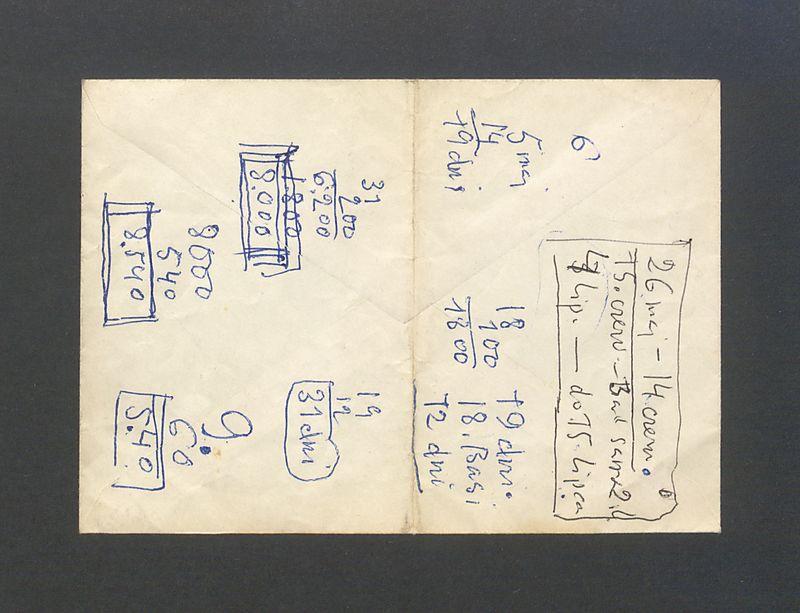 26 maj - 14. czerw.
15. czerw - Basi
lip. — do 15. lipca
6
5 maj
14
19 dni
18
100
1800
19 dni
18. Basi
12 dni
31
200
6.200
1.800
8.000
19
12
31 dni
8000
540
8.540
9.
60
5.40